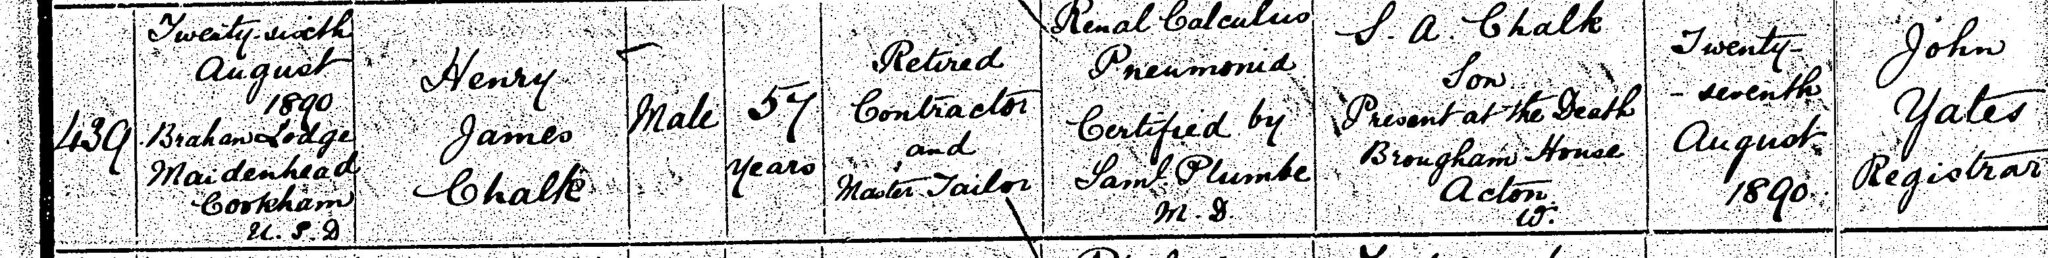 439
Twenty-sixth
August
1890
Braham Lodge
Maidenhead
Cookham
U. S. D
Henry
James
Chalk
Male
57
years
Retired
Contractor
and
Master Tailor
Renal Calculus
Pneumonia
Certified by
Saml Plumbe
M. D.
S. A. Chalk
Son
Present at the Death
Brougham House
Acton
W.
Twenty-
- seventh
August
1890
John
Yates
Registrar